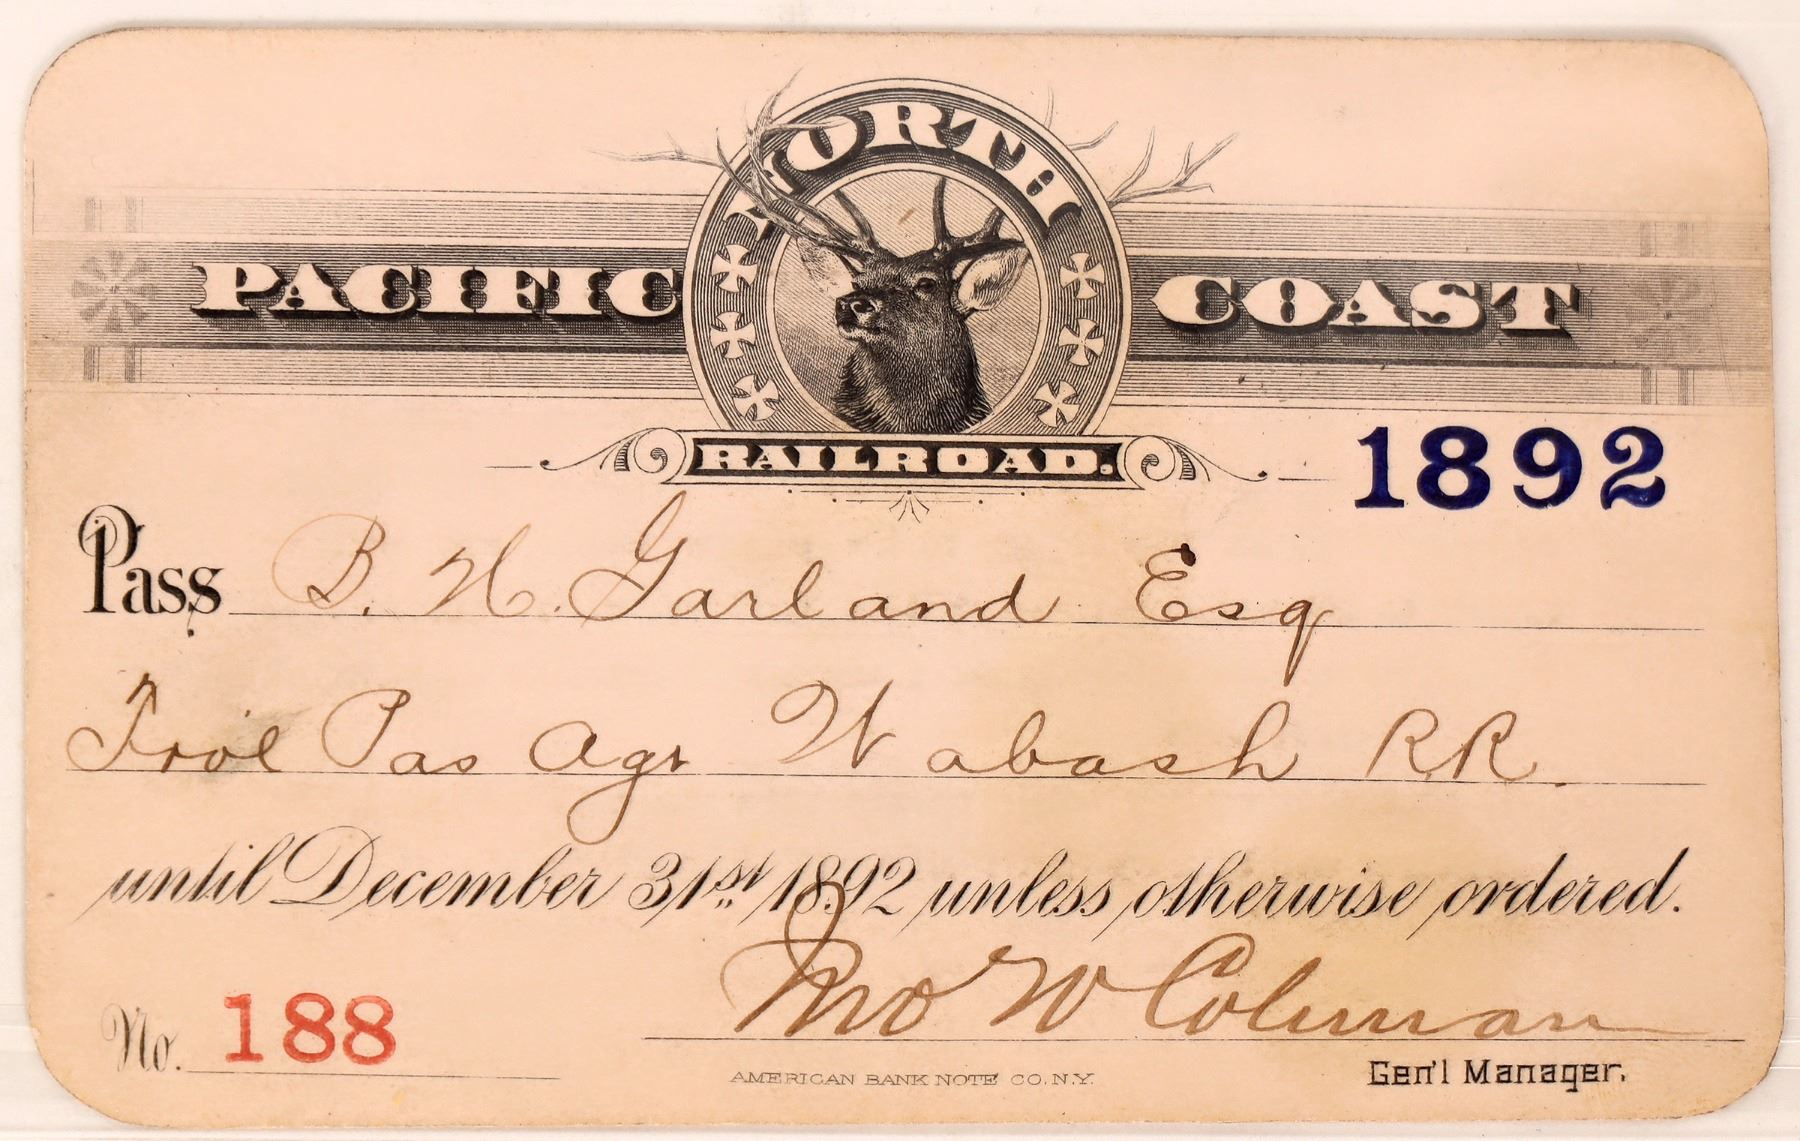 NORTH
PACIFIC COAST
RAILROAD.
1892
Pass B. H. Garland Esq
Trv'l Pas Agt Wabash RR.
until December 31st 1892 unless otherwise ordered.
Jno W Coleman
No. 188
AMERICAN BANK NOTE CO. N.Y.
Gen'l Manager.